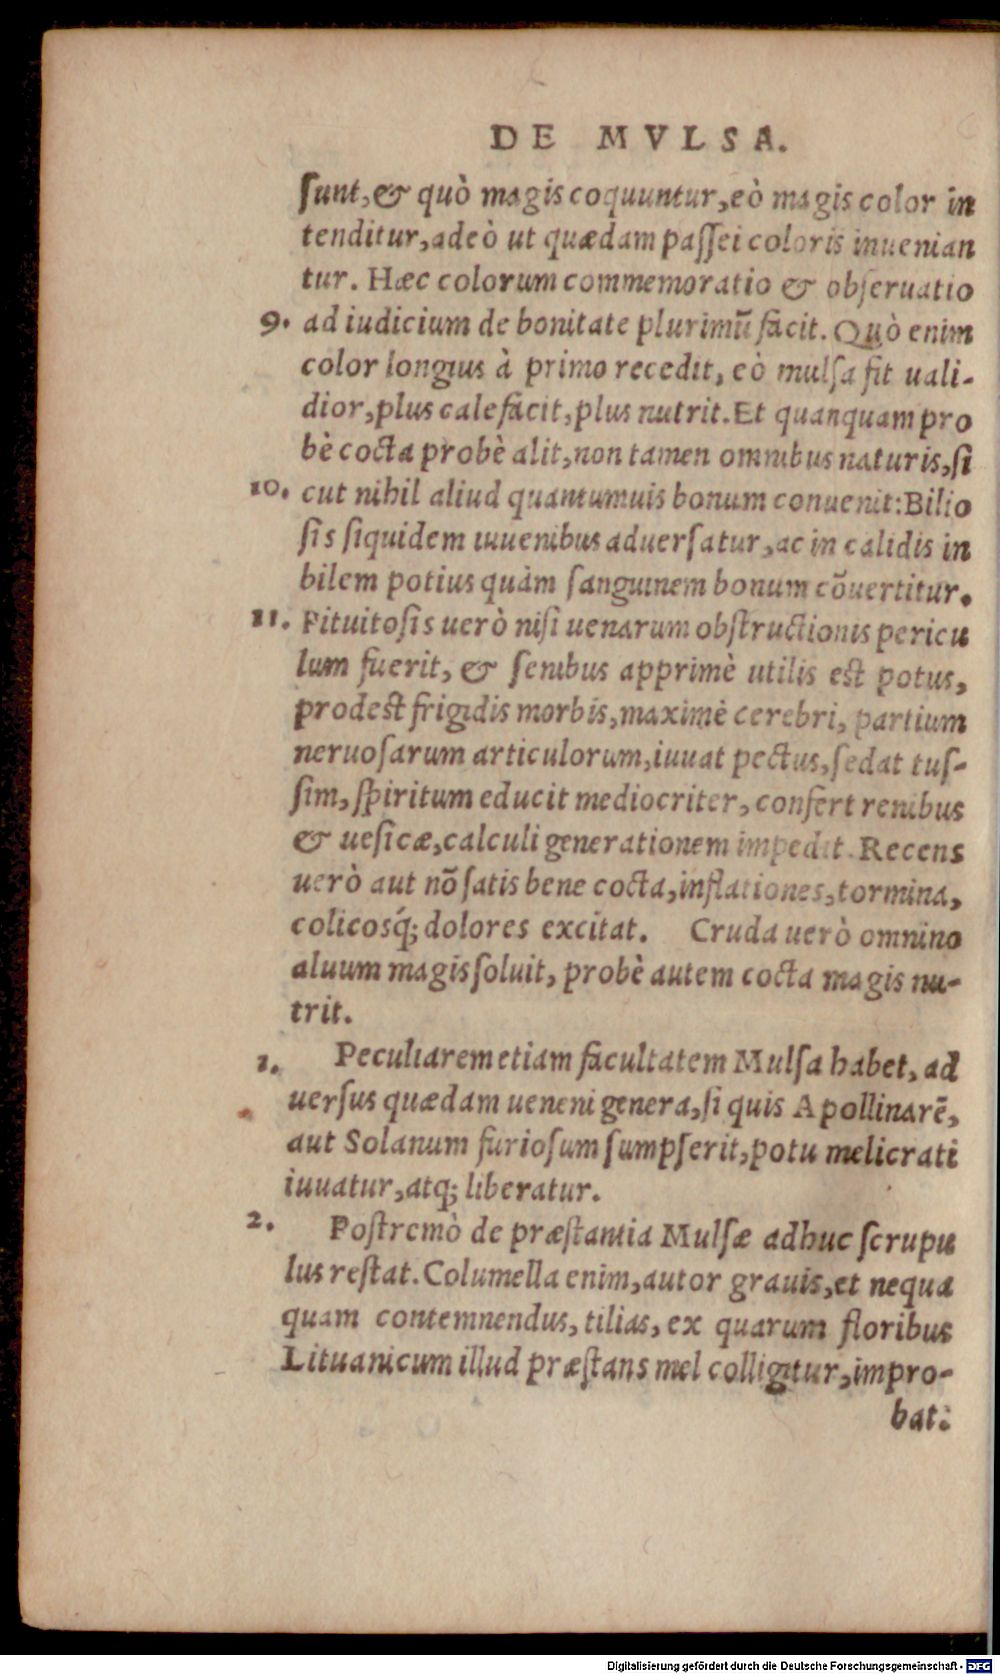 DE MVLSA.
ſunt, & quò magis coquuntur, eò magis color in
tenditur, adeò ut quædam paſſei coloris inuenian
tur. Hæc colorum commemoratio & obſeruatio
9. ad iudicium de bonitate plurimū facit. Quò enim
color longius à primo recedit, eò mulſa fit uali-
dior, plus calefacit, plus nutrit. Et quanquam pro
bè cocta probè alit, non tamen omnibus naturis, ſi
10. cut nihil aliud quantumuis bonum conuenit: Bilio
ſis ſiquidem iuuenibus aduerſatur, ac in calidis in
bilem potius quàm ſanguinem bonum cōuertitur.
11. Pituitoſis uerò niſi uenarum obſtructionis pericu
lum fuerit, & ſenibus apprimè utilis est potus,
prodest frigidis morbis, maximè cerebri, partium
neruoſarum articulorum, iuuat pectus, ſedat tuſ-
ſim, ſpiritum educit mediocriter, confert renibus
& ueſicæ, calculi generationem impedit. Recens
uerò aut nō ſatis bene cocta, inflationes, tormina,
colicosq́; dolores excitat. Cruda uerò omnino
aluum magis ſoluit, probè autem cocta magis nu-
trit.
1. Peculiarem etiam facultatem Mulſa habet, ad
uerſus quædam ueneni genera, ſi quis Apollinarē,
aut Solanum furioſum ſumpſerit, potu melicrati
iuuatur, atq; liberatur.
2. Poſtremò de præſtantia Mulſæ adhuc ſcrupu
lus reſtat. Columella enim, autor grauis, et nequa
quam contemnendus, tilias, ex quarum floribus
Lituanicum illud præſtans mel colligitur, impro-
bat:
Digitalisierung gefördert durch die Deutsche Forschungsgemeinschaft - DFG